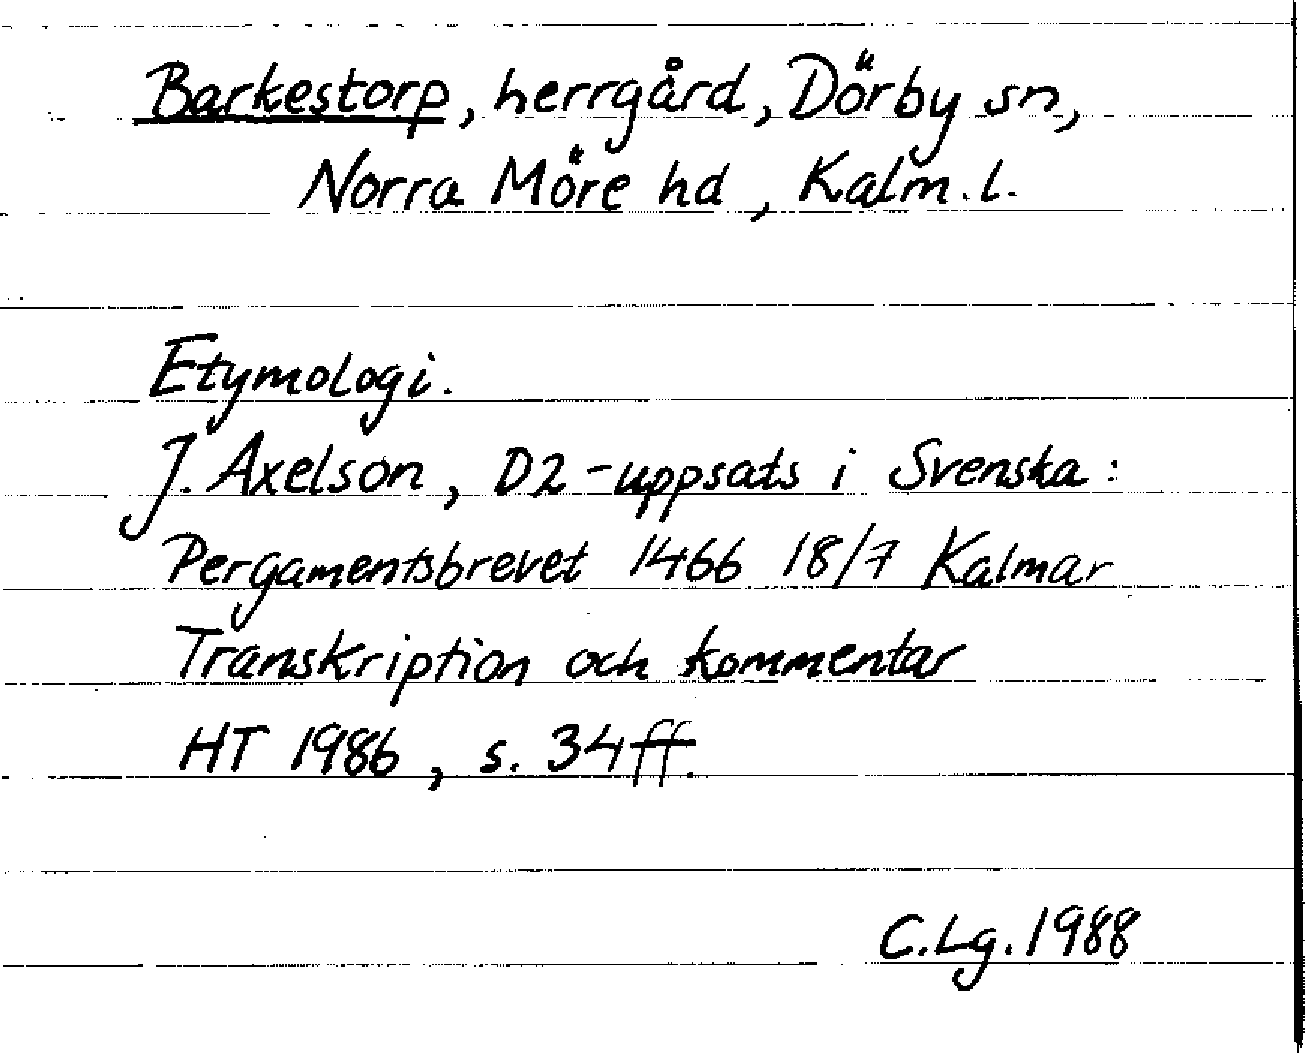 Barkestorp, herrgård, Dörby sn,
Norra Möre hd, Kalm. l.
Etymologi.
J. Axelson, D2-uppsats i Svenska:
Pergamentsbrevet 1466 18/7 Kalmar
Transkription och kommentar
HT 1986, s. 34 ff.
C.Lg. 1988